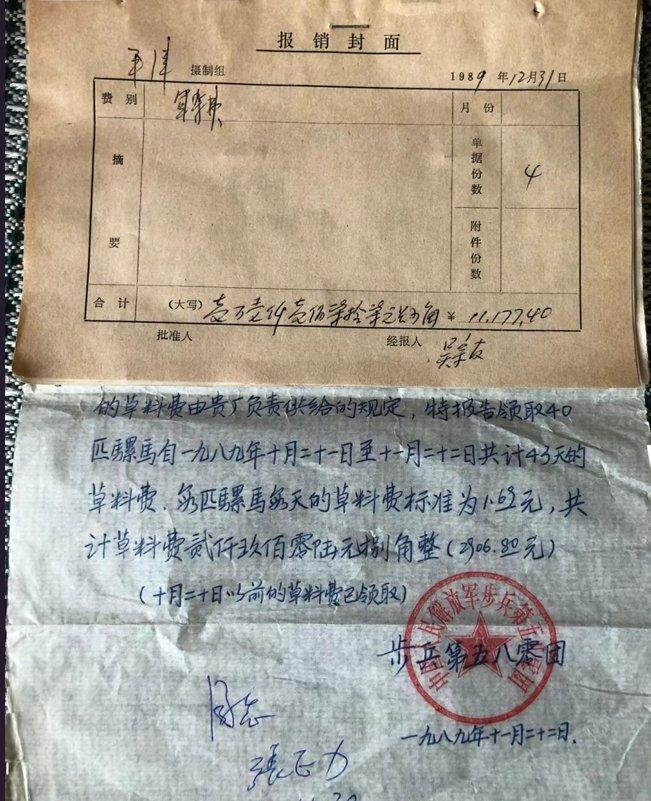 报销封面
平津 摄制组 1989年12月31日
费别 军事费 月份
摘要 单据份数 4
附件份数
合计 (大写) 壹万壹仟壹佰柒拾柒元肆角 ¥ 11.177.40
批准人 经报人
的草料费由贵厂负责供给的规定，特报告领取40
匹骡馬自一九八九年十月二十一日至十一月二十二日共计43天的
草料费．每匹骡馬每天的草料费标准为1.69元，共
计草料费贰仟玖佰零陆元捌角整（2906.80元）
（十月二十日以前的草料费已领取）
步兵第五八零团
中国人民解放军步兵第五八零团
一九八九年十一月二十二日．
同志
張正力